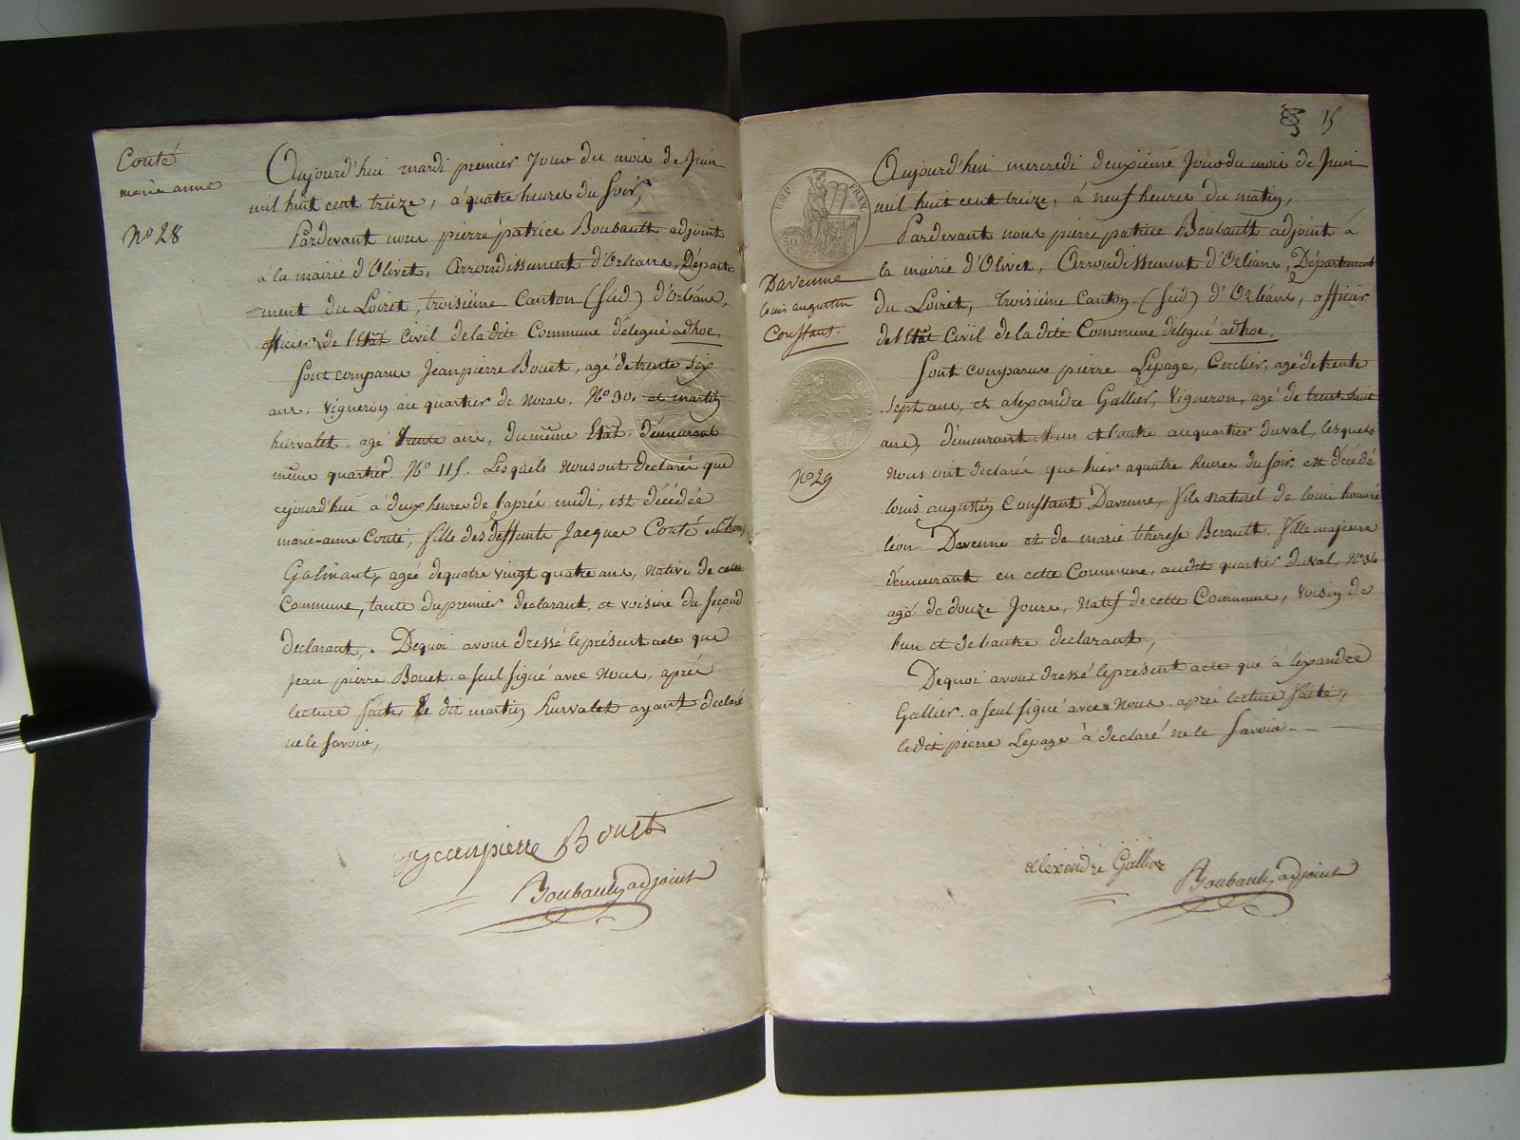 Couté
marie anne
No 28
Aujourd'hui mardi premier Jour du mois de Juin
mil huit cent treize, à quatre heures du soir,
Pardevant nous pierre patrice Boubault adjoint
à la mairie d'Olivet, Arrondissement d'Orléans, Départe
ment du Loiret, troisième Canton (Sud) d'Orléans,
officier de l'état Civil de la dite Commune délégué adhoc.
Sont comparus Jean pierre Bouet, agé de trente six
ans, vigneron au quartier de No 30, et martin
hurvalet agé trente ans, du même Etat, demeurant
même quartier No 115. Lesquels nous ont declaré que
cejourd'hui à deux heures de l'après midi, est décédée
marie-anne Couté, fille des deffunts Jacques Couté et
Galinant, agée de quatre vingt quatre ans, native de cette
Commune, tante du premier declarant, et voisine du second
declarant. Dequoi avons dressé le présent acte que
jean pierre Bouet a seul signé avec Nous, après
lecture faite, le dit martin hurvalet ayant declaré
ne le savoir,
jeanpierre Bouet
Boubault, adjoint
15
TIMP
FRAN
Davenne
louis augustin
Constant
No 29
Aujourd'hui mercredi deuxième Jour du mois de Juin
mil huit cent treize, à neuf heures du matin,
Pardevant nous pierre patrice Boubault adjoint à
la mairie d'Olivet, Arrondissement d'Orléans, Département
du Loiret, troisième Canton (Sud) d'Orléans, officier
de l'état Civil de la dite Commune délégué adhoc.
Sont comparus pierre Lepage, Cerclier, agé de trente
sept ans, et alexandre Gallier, Vigneron, agé de trente huit
ans, demeurant l'un et l'autre au quartier du val, lesquels
nous ont declaré que hier a quatre heures du soir est décédé
louis augustin Constant Davenne, fils naturel de louis honoré
léon Davenne et de marie thérese Berault fille majeure
demeurant en cette Commune, audit quartier du val,
agé de douze Jours, natif de cette Commune, voisin de
l'un et de l'autre declarant,
Dequoi avons dressé le present acte que alexandre
Gallier a seul signé avec Nous après lecture faite,
ledit pierre Lepage à declaré ne le savoir
alexendre Gallier
Boubault, adjoint